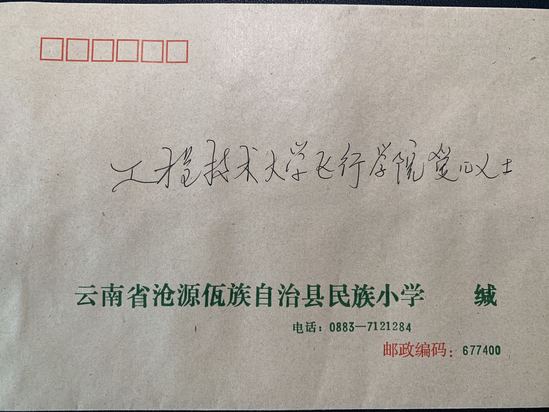 工程技术大学飞行学院爱心义士
云南省沧源佤族自治县民族小学 缄
电话：0883—7121284
邮政编码：677400